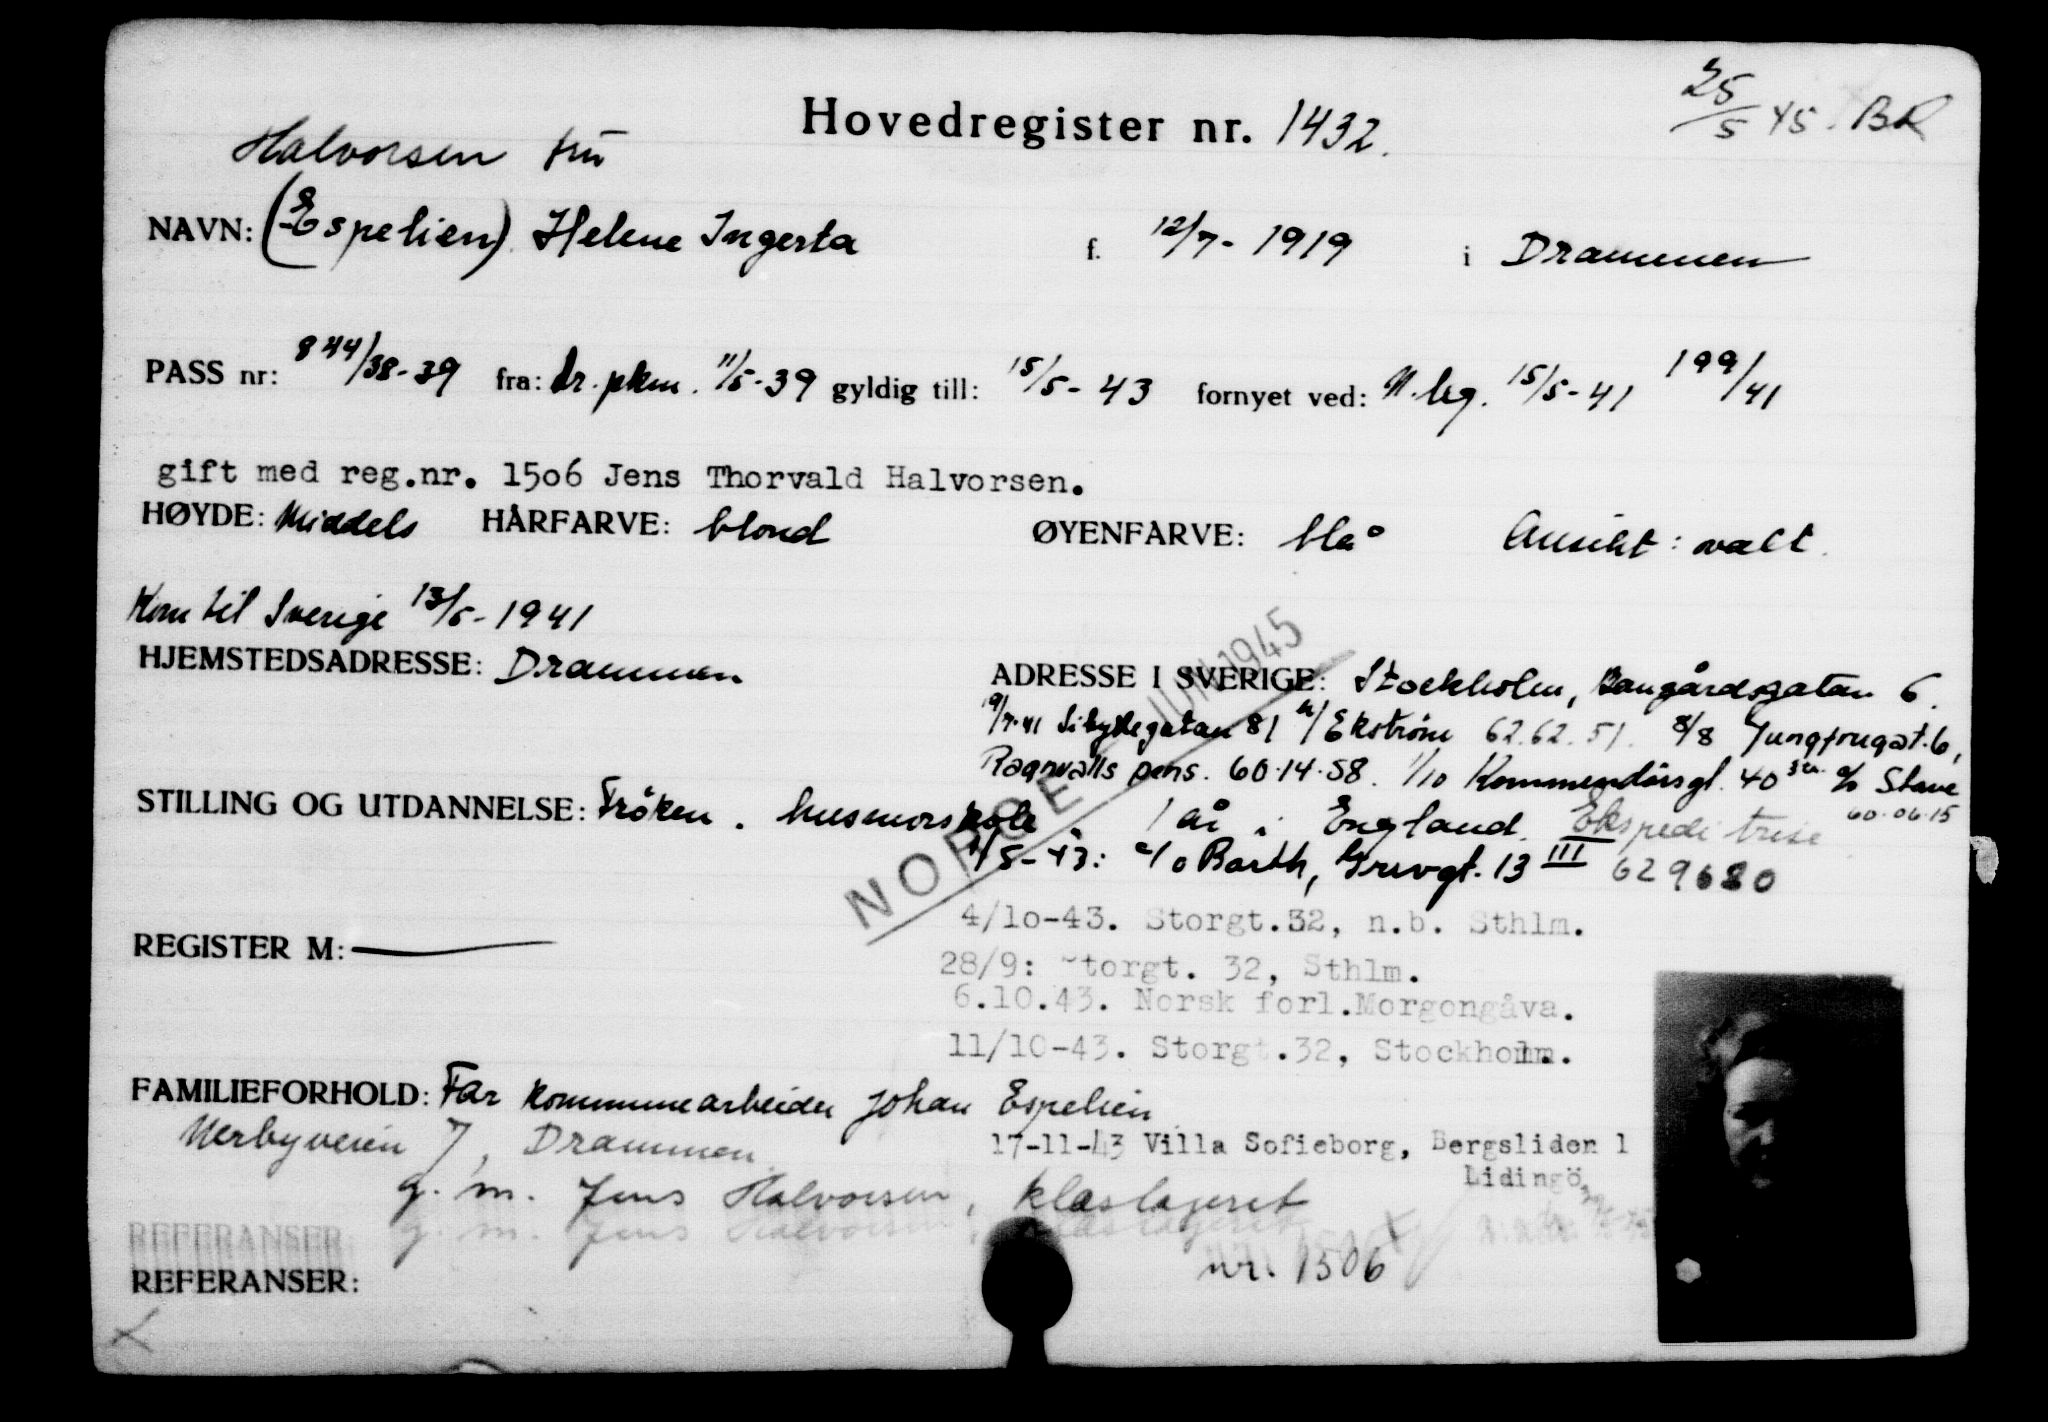 25/5 45. BR
Hovedregister nr. 1432.
Halvorsen fru
NAVN: (Espelien) Helene Ingerta f. 12/7- 1919 i Drammen
PASS nr: 844/38-39 fra: Dr. pkm. 11/5-39 gyldig till: 15/5- 43 fornyet ved: N.leg. 15/5-41 199/41
gift med reg.nr. 1506 Jens Thorvald Halvorsen.
HØYDE: Middels HÅRFARVE: blond ØYENFARVE: blå Ansikt: ovalt.
Kom til Sverige 13/5-1941
HJEMSTEDSADRESSE: Drammen
ADRESSE I SVERIGE: Stockholm, Bangårdsgatan 6.
19/7-41 Sibyllegatan 81 Ekström 62.62.51. 8/8 Jungfrugat. 6,
Ragnvalls pens. 60.14.58. 1/10 Kommendörsgt. 40 c/o Stave
60.06.15
STILLING OG UTDANNELSE: Fröken. husmorskole, 1 år i England. Ekspeditrise
/5-43: c/o Barth, Gruvgt. 13 III 629680
NORGE JUNI 1945
4/10-43. Storgt.32, n.b. Sthlm.
REGISTER M:
28/9: Storgt. 32, Sthlm.
6.10.43. Norsk forl.Morgongåva.
11/10-43. Storgt.32, Stockholm.
FAMILIEFORHOLD: Far kommunearbeider Johan Espelien
Merbyveien 7, Drammen.
17-11-43 Villa Sofieborg, Bergsliden 1
Lidingö
g. m. Jens Halvorsen, klæslageret
nr. 1506
REFERANSER: